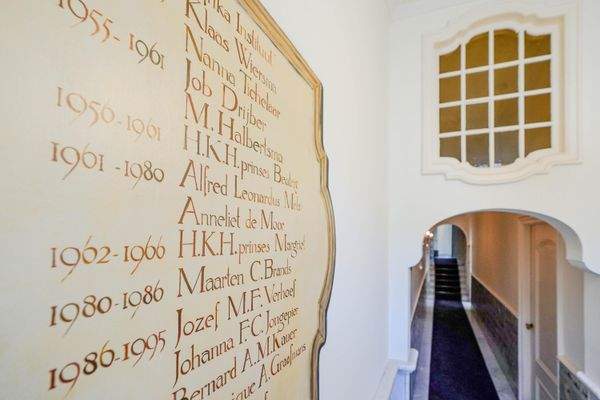 Instituut
Klaas Wiersma
Nanna Tichelaar
1955-1961 Job Drijber
M. Halbertsma
1956-1961 H.K.H. prinses Beatrix
1961-1980 Alfred Leonardus Mels
Anneliet de Moor
1962-1966 H.K.H. prinses Margriet
1980-1986 Maarten C. Brands
1986-1995 Jozef M.F. Verhoef
Johanna F.C. Jongepier
Bernard A.M. Kauer
A. Graafmans